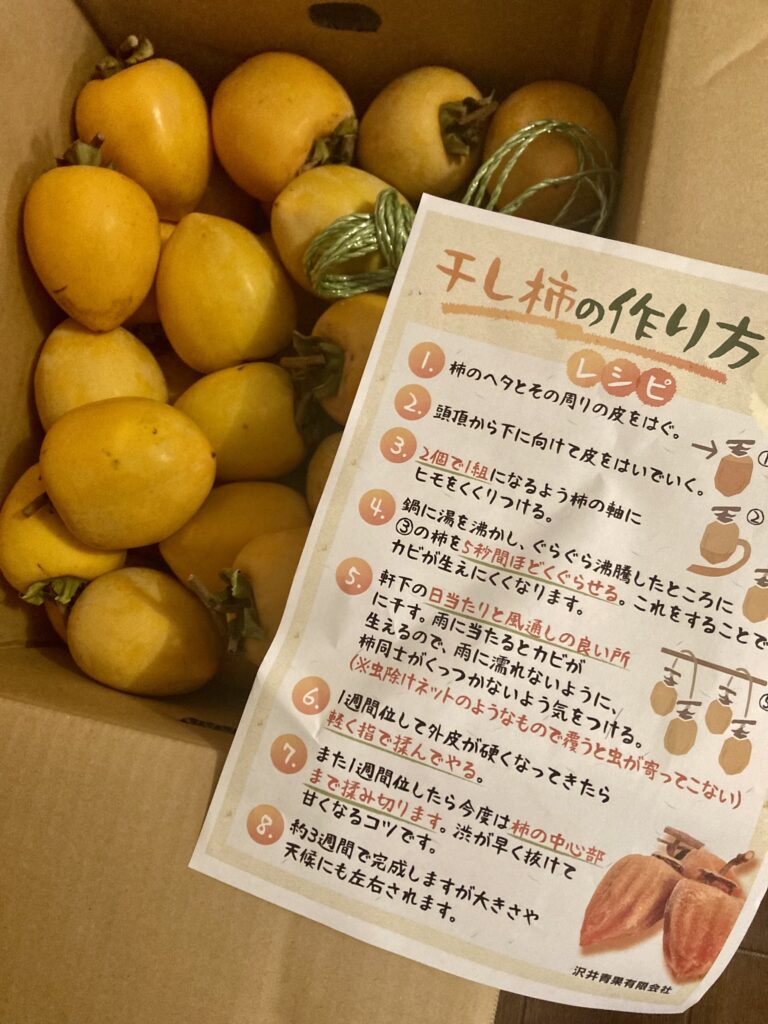 干し柿の作り方
レシピ
1. 柿のヘタとその周りの皮をはぐ。
2. 頭頂から下に向けて皮をはいでいく。
3. 2個で1組になるよう柿の軸に
ヒモをくくりつける。
4. 鍋に湯を沸かし、ぐらぐら沸騰したところに
③の柿を5秒間ほどくぐらせる。これをすることで
カビが生えにくくなります。
5. 軒下の日当たりと風通しの良い所
に干す。雨に当たるとカビが
生えるので、雨に濡れないように、
柿同士がくっつかないよう気をつける。
(※虫除けネットのようなもので覆うと虫が寄ってこない)
6. 1週間位して外皮が硬くなってきたら
軽く指で揉んでやる。
7. また1週間位したら今度は柿の中心部
まで揉み切ります。渋が早く抜けて
甘くなるコツです。
8. 約3週間で完成しますが大きさや
天候にも左右されます。
①
②
⑤
沢井青果有限会社